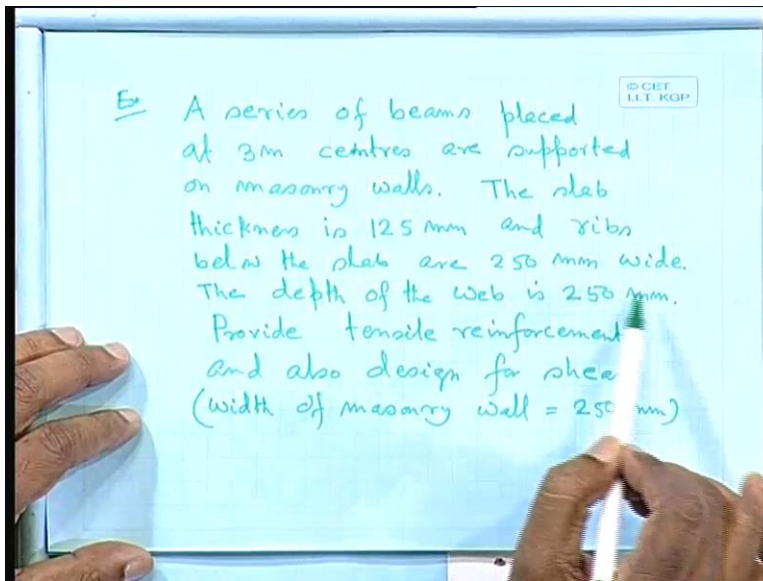 Ex
© CET
I.I.T. KGP
A series of beams placed
at 3m centres are supported
on masonry walls. The slab
thickness is 125 mm and ribs
below the slab are 250 mm wide.
The depth of the web is 250 mm.
Provide tensile reinforcement
and also design for shea
(width of masonry wall = 250 mm)